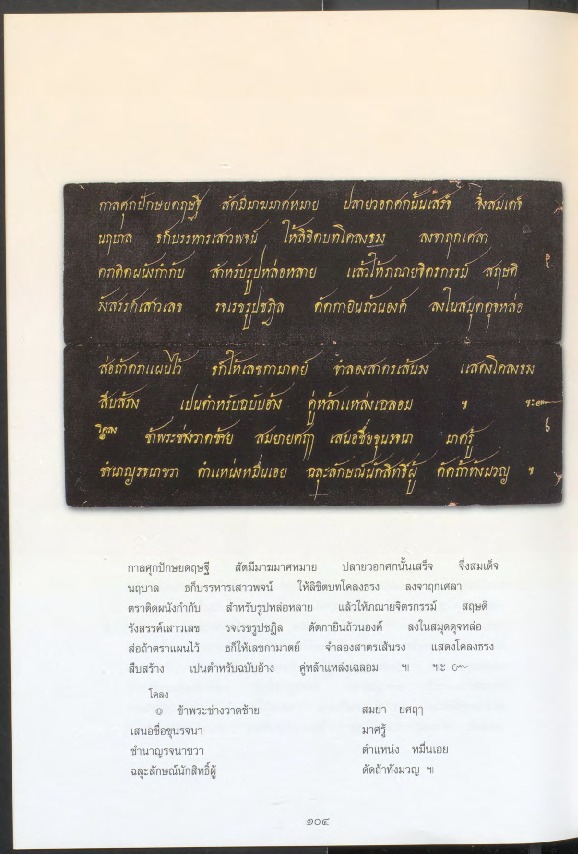 กาลศุกปักษยดฤษฐี สัตมีมาฆมาศหมาย ปลายวอกศกนั้นเสร็จ จึ่งสมเดจ์
นฤบาล ธก็บรรหารเสาวพจน์ ให้ลิขิตบทโคลงธรง ลงจาฤกเศลา
ตราติดผนังกำกับ สำหรับรูปหล่อหลาย แล้วให้ภณายจิตรกรรม์ สฤษดิ
รังสรรค์เสาวเลข รจเรขรูปชฎิล ดัดกายินถ้วนองค์ ลงในสมุดดุจหล่อ
ส่อถ้าตราแผนไว้ ธก็ให้เลขกามาตย์ จำลองสาตรเส้นรง แสดงโคลงธรง
สืบสร้าง เปนตำหรับฉบับอ้าง คู่หล้าแหล่งเฉลอม ฯ ฯะ๛
โคลง ข้าพระช่างวาดซ้าย สมยายศฤๅ เสนอชื่อขุนรจนา มาศรู้
ชำนาญรจนาขวา ตำแหน่ง หมื่นเอย ฉลุะลักษณ์นักสิทธิ์ผู้ ดัดถ้าทังมวญ ฯ
กาลศุกปักษยดฤษฐี สัตมีมาฆมาศหมาย ปลายวอกศกนั้นเสร็จ จึ่งสมเด็จ
นฤบาล ธก็บรรหารเสาวพจน์ ให้ลิขิตบทโคลงธรง ลงจาฤกเศลา
ตราติดผนังกำกับ สำหรับรูปหล่อหลาย แล้วให้ภณายจิตรกรรม์ สฤษดิ
รังสรรค์เสาวเลข รจเรขรูปชฎิล ดัดกายินถ้วนองค์ ลงในสมุดดุจหล่อ
ส่อถ้าตราแผนไว้ ธก็ให้เลขกามาตย์ จำลองสาตรเส้นรง แสดงโคลงธรง
สืบสร้าง เปนตำหรับฉบับอ้าง คู่หล้าแหล่งเฉลอม ฯ ฯะ ๛
โคลง
๏ ข้าพระช่างวาดซ้าย สมยา ยศฤๅ
เสนอชื่อขุนรจนา มาศรู้
ชำนาญรจนาขวา ตำแหน่ง หมื่นเอย
ฉลุะลักษณ์นักสิทธิ์ผู้ ดัดถ้าทังมวญ ฯ
๑๐๔